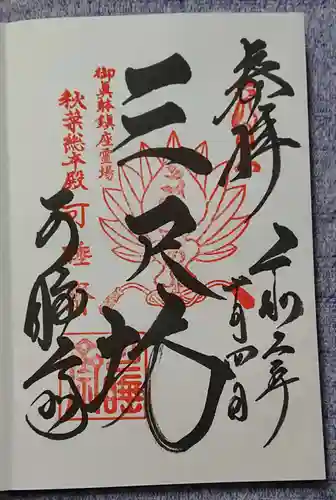 奉拝
十月四日
三尺坊
御眞躰鎮座霊場
秋葉総本殿 可睡斎
可睡斎